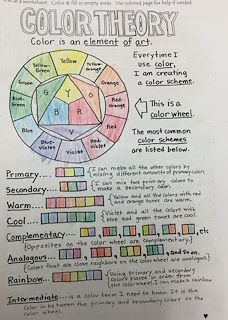 on a worksheet. Color & fill in empty areas. Use colored page for help if needed.
COLOR THEORY
Color is an element of art.
Everytime I
use color,
I am creating
a color scheme.
Yellow
Yellow-Green
Yellow-Orange
Green
Orange
Blue-Green
Red-Orange
Y
G
O
B
R
V
Blue
Red
Blue-Violet
Red-Violet
Violet
This is a
color wheel.
The most common
color schemes
are listed below.
Primary...
(I can make all the other colors by
mixing different amounts of primary colors)
Secondary...
(I can mix two primary colors to
make a secondary color.
Warm...
Yellow and all the colors with red
and orange tones are warm.
Cool...
Violet and all the colors with
blue and green tones are cool.
Complementary... , , , etc
(Opposites on the color wheel are complementary)
Analogous... , and so on.
(Colors that are close neighbors on the colorwheel are analogous)
Rainbow...
(Using primary and secondary
Colors placed in order from
the colorwheel, I can make a rainbow
Intermediate... is a color term I need to know. It is the
color in between the primary and secondary colors on the
color wheel.